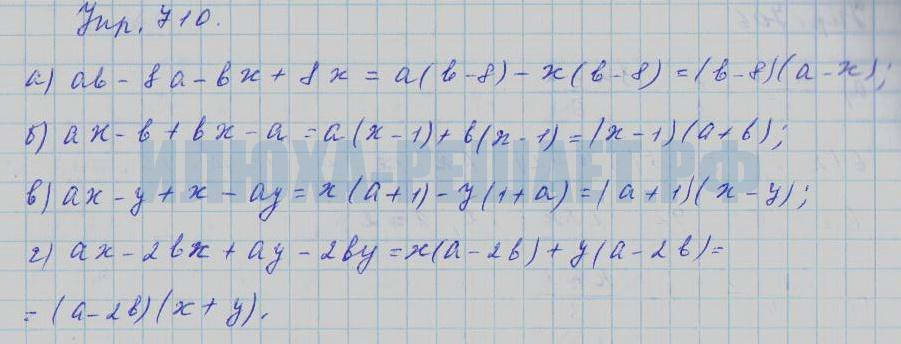 Упр. 710.
а) ab - 8a - bx + 8x = a(b-8) - x(b-8) = (b-8)(a-x);
б) ax - b + bx - a = a(x-1) + b(x-1) = (x-1)(a+b);
ИЛЮХА-РЕШАЕТ.РФ
в) ax - y + x - ay = x(a+1) - y(1+a) = (a+1)(x-y);
г) ax - 2bx + ay - 2by = x(a-2b) + y(a-2b) =
= (a-2b)(x+y).